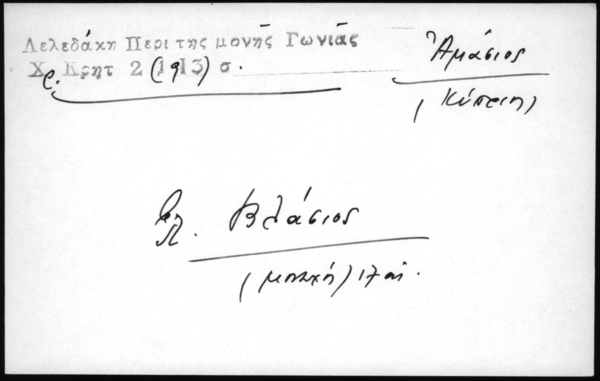 Λελεδάκη Περι της μονής Γωνιάς
Χρ. Κρητ 2 (1913) σ.
Ἀμάσιος
(Κύπριος)
Βλάσιος
(μοναχή) 17 αἰ.